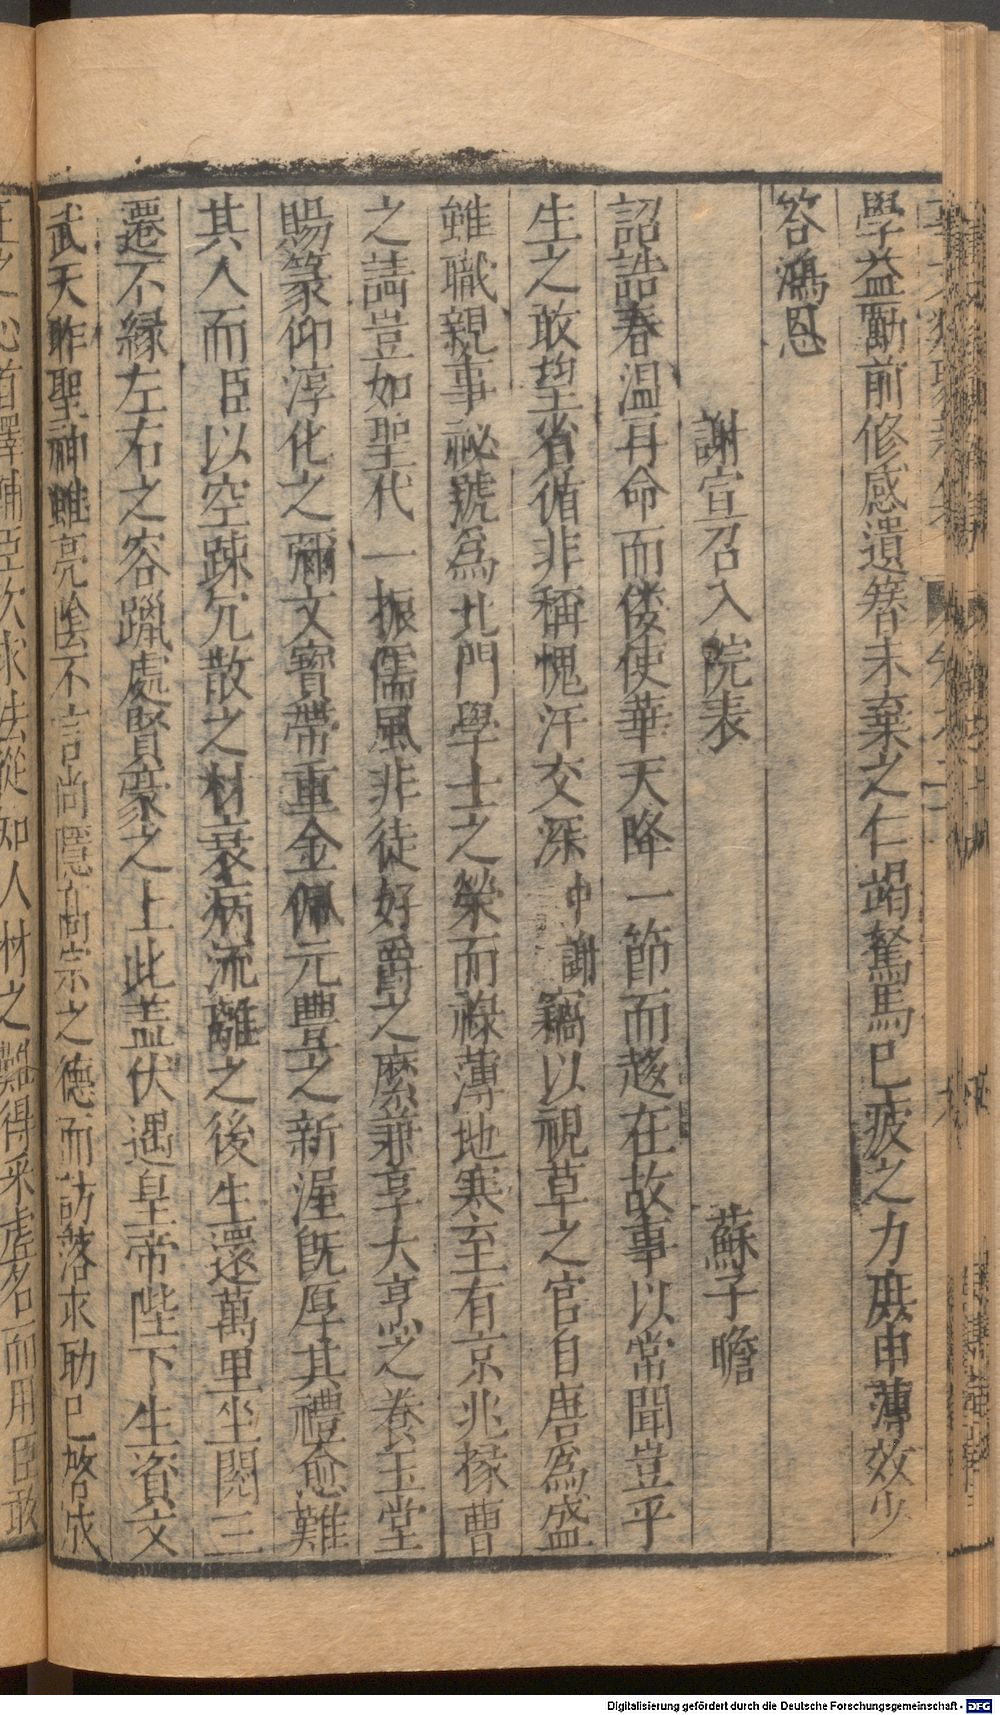 學益勤前修感遺簪未棄之仁竭駑馬已疲之力庶申薄效少
答鴻恩
謝宣召入院表
蘇子瞻
詔誥春温再命而僂使華天降一節而趍在故事以常聞豈平
生之敢望省循非稱愧汗交深中謝竊以視草之官自唐爲盛
雖職親事祕號爲北門學士之榮而祿薄地寒至有京兆掾曹
之請豈如聖代一振儒風非徒好爵之縻兼享大亨之養玉堂
賜篆仰淳化之彌文寳帶重金佩元豐之新渥旣厚其禮愈難
其人而臣以空踈冗散之材衰病流離之後生還萬里坐閱三
遷不縁左右之容躐處賢豪之上此盖伏遇皇帝陛下生資文
武天胙聖神雖亮隂不言尚隱高宗之德而訪落求助已啓成
Digitalisierung gefördert durch die Deutsche Forschungsgemeinschaft - DFG